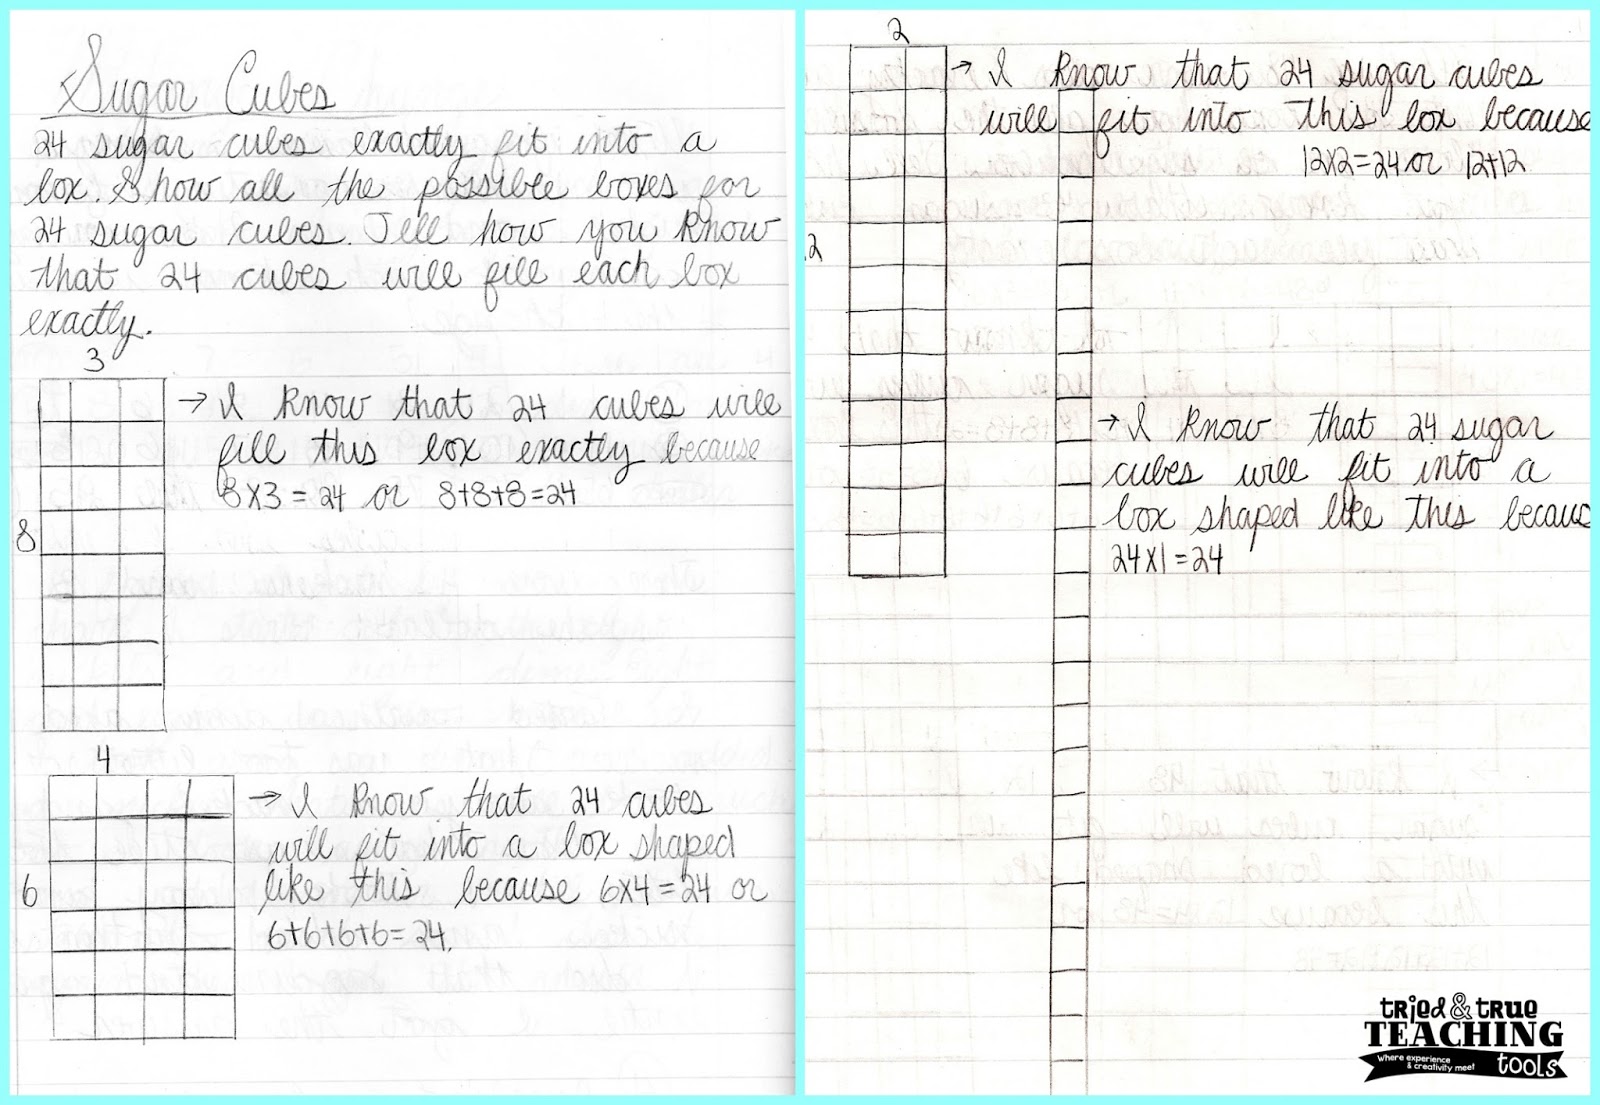 Sugar Cubes
24 sugar cubes exactly fit into a
box. Show all the possible boxes for
24 sugar cubes. Tell how you know
that 24 cubes will fill each box
exactly.
3
8
→ I know that 24 cubes will
fill this box exactly because
8x3 = 24 or 8+8+8=24
4
6
→ I know that 24 cubes
will fit into a box shaped
like this because 6x4 = 24 or
6+6+6+6= 24.
2
2
→ I know that 24 sugar cubes
will fit into this box because
12x2=24 or 12+12
→ I know that 24 sugar
cubes will fit into a
box shaped like this becaus
24x1=24
tried & true
TEACHING
tools
where experience
& creativity meet